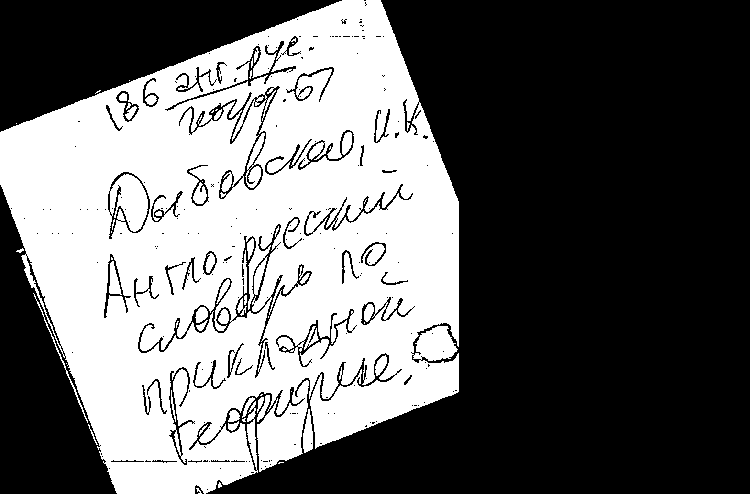 186 анг.-рус.
67
Дыбовская, И.К.
Англо-русский
словарь по
прикладной
геофизике.